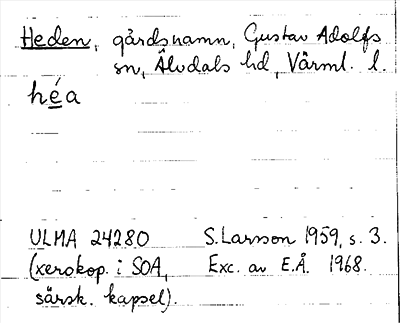 Heden, gårdsnamn, Gustav Adolfs
sn, Älvdals hd, Värml. l.
héa
ULMA 24280 S. Larsson 1959, s. 3.
(xerokop. i SOA, Exc. av E.Å. 1968.
särsk. kapsel).